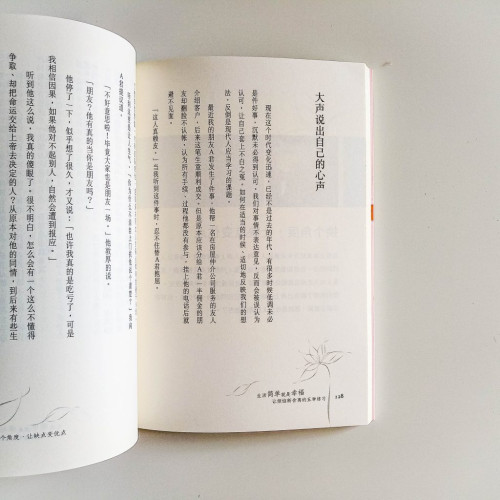 大声说出自己的心声
现在这个时代变化迅速，已经不是过去的年代，有很多时候低调未必
是件好事，沉默未必得到认可，我们对事情不表达意见，反而会被误认为
认可，让自己套上不白之冤，如何在适当的时候，适切地反映我们的想
法，反倒是现代人应当学习的课题。
最近我的朋友A君发生了件事，他帮一名在房屋仲介公司服务的友人
介绍客户，后来这笔生意顺利成交，但是原本应该分给A君一半佣金的朋
友却翻脸不认帐，认为所有手续、过程他都没有参与，挂上他的电话后就
避不见面。
“这人真恶劣。”当我听到这件事时，忍不住替A君抱屈。
生活简单就是幸福
让烦恼断舍离的五章修习
128
“不好意思啦！毕竟大家也是朋友一场。”他敦厚的说。
“朋友？他有真的当你是朋友吗？”
他停了一下，似乎想了很久，才又说：“也许我真的是吃亏了，可是
我相信因果，如果他对不起别人，自然会遭到报应。”
听到他这么说，我真的傻眼了，很不明白，怎么会有一个这么不懂得
争取、却把命运交给上帝去决定的人？从原本对他的同情，到后来有些生
个角度，让缺点变优点